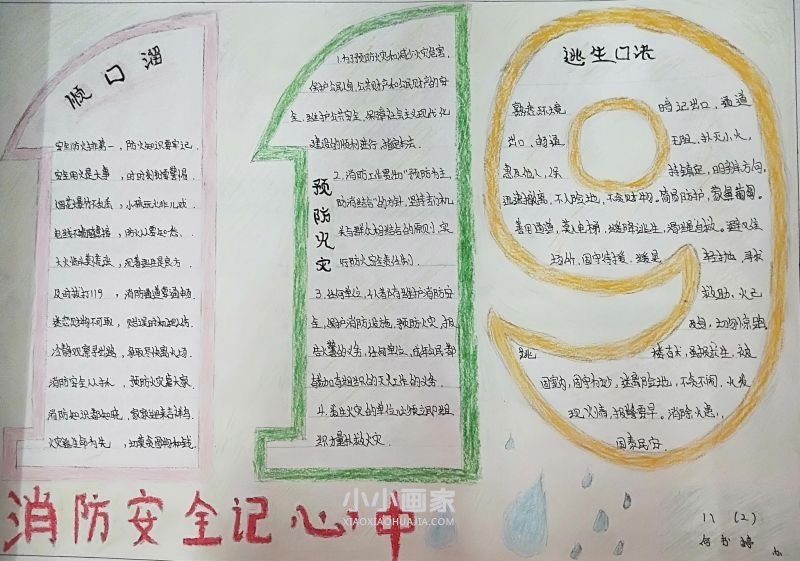 顺口溜
安全防火排第一，防火知识要牢记
安全用火是大事，时时刻刻需警惕
烟花爆竹不乱丢，小孩玩火非儿戏
及时拨打119，消防通道要通畅
迷恋财物不可取
冷静观察寻出路，争取尽快离火场
消防安全从手认，预防火灾是大家
消防知识都知晓
预防火灾
1.为了预防火灾和减少火灾危害，
保护公民人身、公共财产和公民财产的安
全，维护公共安全，保障社会主义现代化
建设的顺利进行，制定本法。
2.消防工作贯彻"预防为主，
防消结合"的方针，坚持专门机
关与群众相结合的原则，实
行防火安全责任制。
3.任何单位、个人都有维护消防安
全，保护消防设施，预防火灾，报
告火警的义务，任何单位、成年公民都
有参加有组织的灭火工作的义务。
4.发生火灾的单位必须立即组
织力量扑救火灾。
逃生口决
熟悉环境 暗记出口，通道
出口，畅通 无阻，扑灭小火，
惠及他人，保 持镇定，明辨方向，
迅速撤离，不入险地，不贪财物。简易防护，蒙鼻匍匐。
善用通道，莫入电梯，缓降逃生，滑绳自救。避难场
所，固守待援，缓晃 轻抛，寻求
救助，火已
及身，切勿惊跑
跳楼有术，虽损求生，被
困室内，固守为妙，速离险地，不贪不闹，火发
现火情，报警要早。消除火患，
国泰民安
消防安全记心中
小小画家
XIAOXIAOHUAJIA.COM